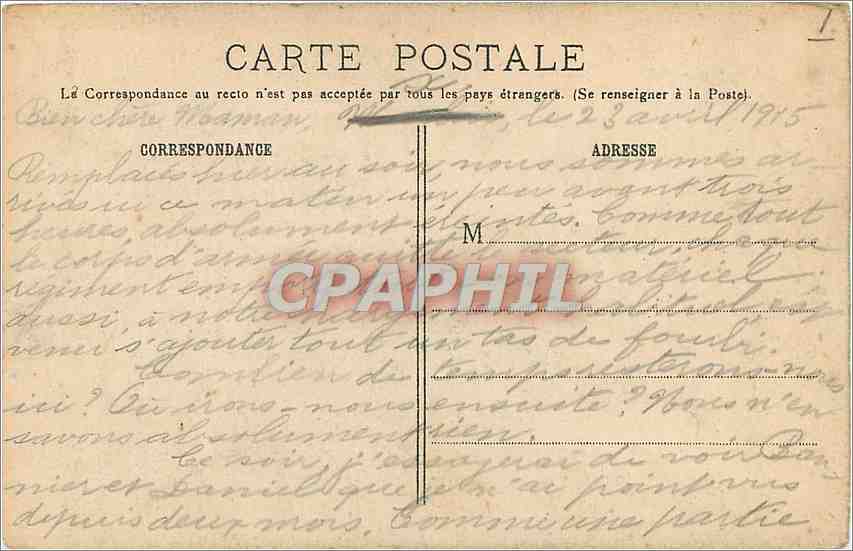 1
CARTE POSTALE
La Correspondance au recto n'est pas acceptée par tous les pays étrangers. (Se renseigner à la Poste).
Bien chère Maman, le 23 avril 1915
CORRESPONDANCE
ADRESSE
M
Remplacés hier au soir, nous sommes ar-
rivés ici ce matin un peu avant trois
heures absolument éreintés. Comme tout
le corps d'armée quitte secteur, chaque
régiment emporte matériel
aussi, à notre est
venu s'ajouter tout un tas de fourbi.
Combien de temps resterons-nous
ici? Où irons-nous ensuite? Nous n'en
savons absolument rien.
Ce soir, j'essayerai de voir
et Daniel que je n'ai point vus
depuis deux mois. Comme une partie
CPAPHIL